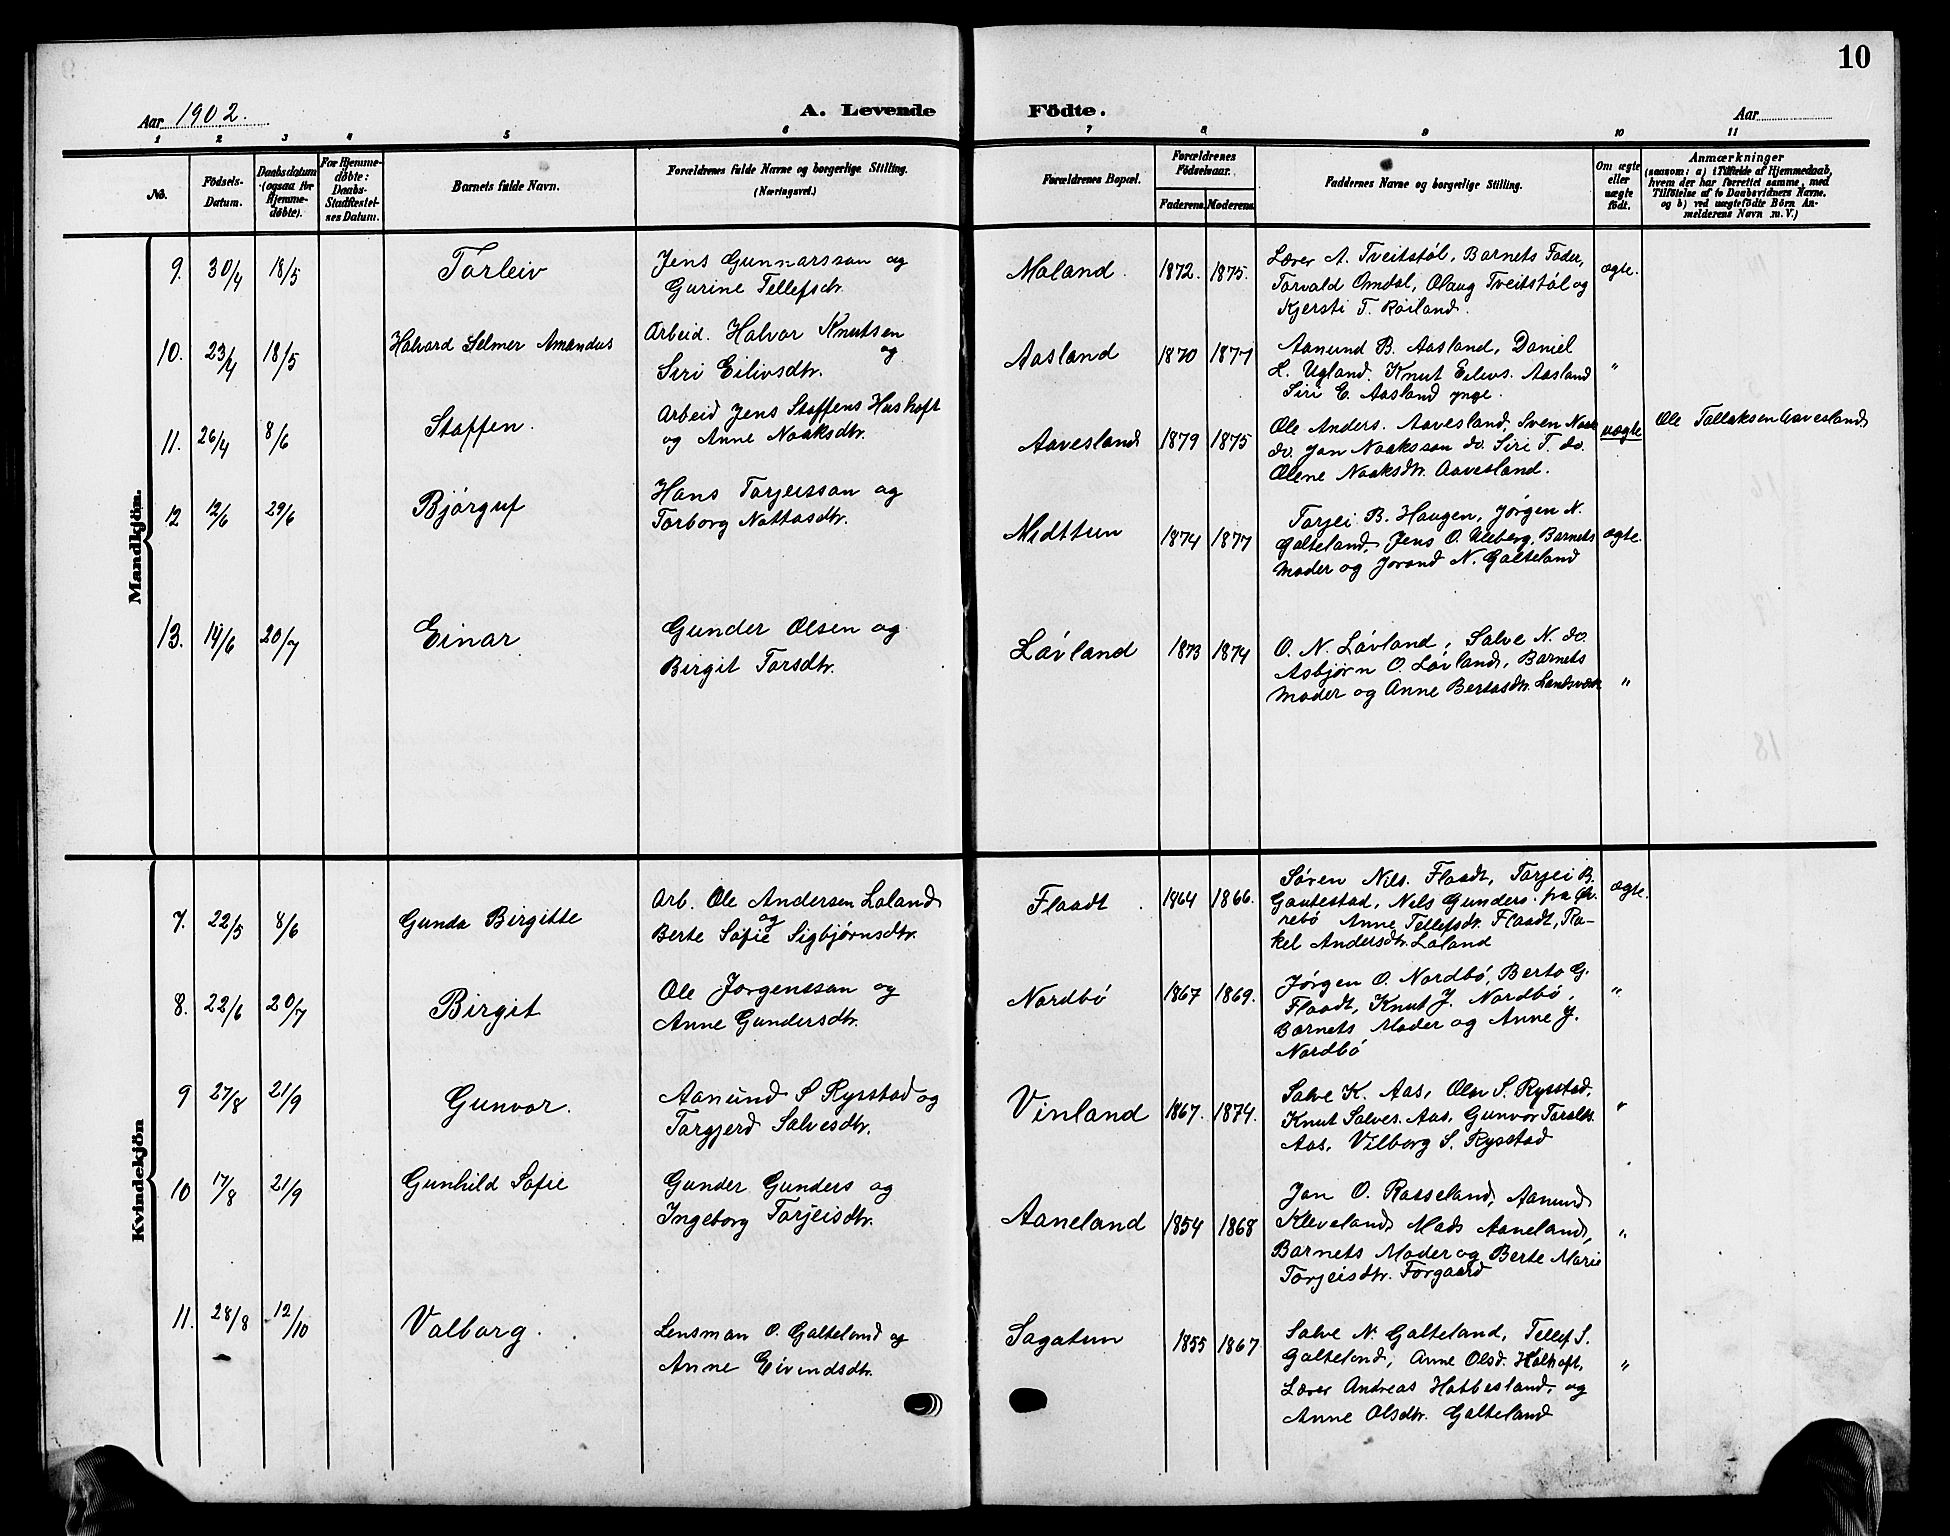 10
Aar 1902.
A. Levende Födte.
Aar
1 2 3 4 5 6 7 8 9 10 11
No.
Födsels-Datum.
Daabsdatum (ogsaa for Hjemme-döbte).
For Hjemme-döbte: Daabs-Stadfæstel-ses Datum.
Barnets fulde Navn.
Forældrenes fulde Navne og borgerlige Stilling. (Næringsvei.)
Forældrenes Bopæl.
Forældrenes Födselsaar.
Faderens. Moderens.
Faddernes Navne og borgerlige Stilling.
Om ægte eller uægte födt.
Anmærkninger
(saasom: a) i Tilfælde af Hjemmedaab,
hvem der har forrettet samme, med
Tilföielse af to Daabsvidners Navne.
og b) ved uægtefödte Börn An-
melderens Navn m. V.)
Mandkjön.
9. 30/4 18/5 Torleiv
Jens Gunnarsson og
Gurine Tellefsdtr.
Moland. 1872. 1875.
Lærer A. Tveitstøl, Barnets Fader,
Torvald Omdal, Olaug Tveitstøl og
Kjersti T. Röiland.
ægte.
10. 23/4 18/5 Halvard Selmer Amandus
Arbeid. Halvor Knutsen
og
Siri Eilivsdtr.
Aasland 1870 1877
Aanund B. Aasland, Daniel
L. Ugland. Knut Eilevs. Aasland
Siri E. Aasland ynge.
"
11. 26/4 8/6 Staffen.
Arbeid Jens Staffens Hushoft
og Anne Noaksdtr.
Aavesland 1879 1875
Ole Anders. Aavesland, Sven Noaks
do. Jon Noaksson do. Siri T. do.
Olene Noaksdtr. Aavesland.
uægte
Ole Tallaksen Aavesland
12 12/6 29/6 Bjørguf
Hans Torjeisson og
Torborg Nottosdtr.
Midttun 1874 1877
Torjei B. Haugen, Jørgen N.
Galteland, Jens O. Uleberg, Barnets
Moder og Jorand N. Galteland
ægte.
13. 14/6 20/7 Einar
Gunder Olsen og
Birgit Torsdtr.
Lövland 1873 1874
O. N. Lövland, Salve N. do.
Asbjørn O. Lövland, Barnets
Moder og Anne Bertosdtr.
"
Kvindekjön
7. 22/5 8/6 Gunda Birgitte
Arb. Ole Andersen Loland
og
Berte Sofie Sigbjørnsdtr.
Flaadt. 1864 1866.
Søren Nils. Flaadt, Torjei B.
Gautestad, Nils Gunders. fra Øv-
rebö Anne Tellefsdtr. Flaadt, Ra-
kel Andersdtr. Loland
ægte.
8. 22/6 20/7 Birgit
Ole Jørgensson og
Anne Gundersdtr.
Nordbö 1867 1869.
Jørgen O. Nordbö, Berto G.
Flaadt, Knut J. Nordbö,
Barnets Moder og Anne J.
Nordbö
"
9 27/8 21/9 Gunvor.
Aanund S Rysstad og
Torgjerd Salvesdtr.
Vinland 1867. 1874.
Salve K. Aas, Olav S. Rysstad,
Knut Salves. Aas, Gunvor Toralds.
Aas, Vilborg S. Rysstad
"
10 17/8 21/9 Gunhild Sofie
Gunder Gunders og
Ingeborg Torjeisdtr.
Aaneland 1854 1868
Jon O. Rosseland, Aanund
Kleveland, Mads Aaneland,
Barnets Moder og Berte Marie
Torjeisdtr. Forgaard
"
11. 28/8 12/10 Valborg.
Lensman O. Galteland og
Anne Eivindsdtr.
Sagatun 1855 1867
Salve N. Galteland, Tellef S.
Galteland, Anne Olsd. Holhoft,
Lærer Andreas Hatbesland, og
Anne Olsdtr. Galteland
"